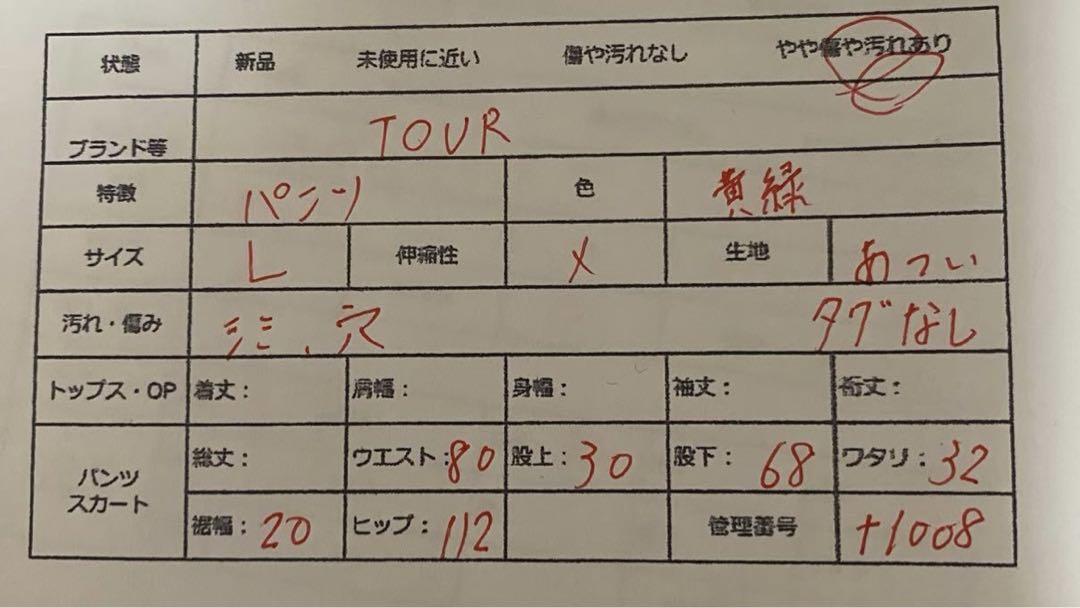 状態 新品 未使用に近い 傷や汚れなし やや傷や汚れあり
ブランド等 TOUR
特徴 パンツ 色 黄緑
サイズ L 伸縮性 × 生地 あつい
汚れ・傷み シミ、穴 タグなし
トップス・OP 着丈: 肩幅: 身幅: 袖丈: 裄丈:
パンツ スカート
総丈: ウエスト:80 股上:30 股下: 68 ワタリ:32
裾幅:20 ヒップ:112 管理番号 +1008